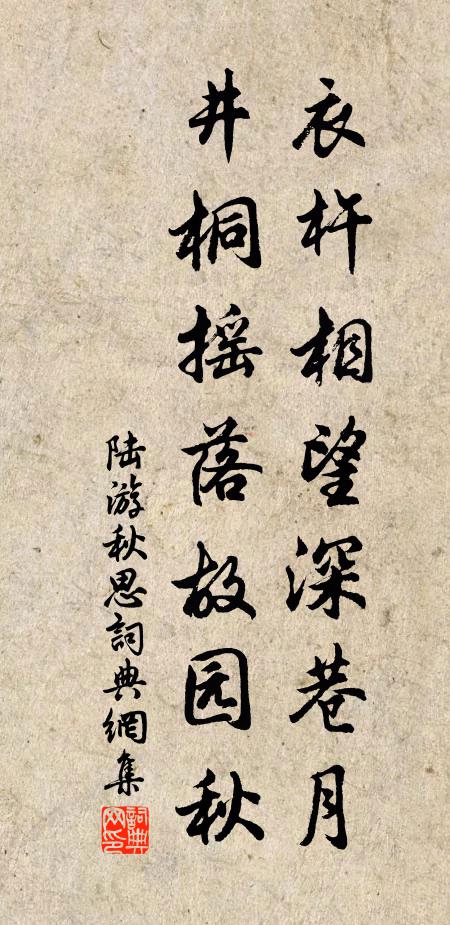 衣杵相望深巷月
井桐摇落故园秋
陆游秋思詞典網集
詞典网印